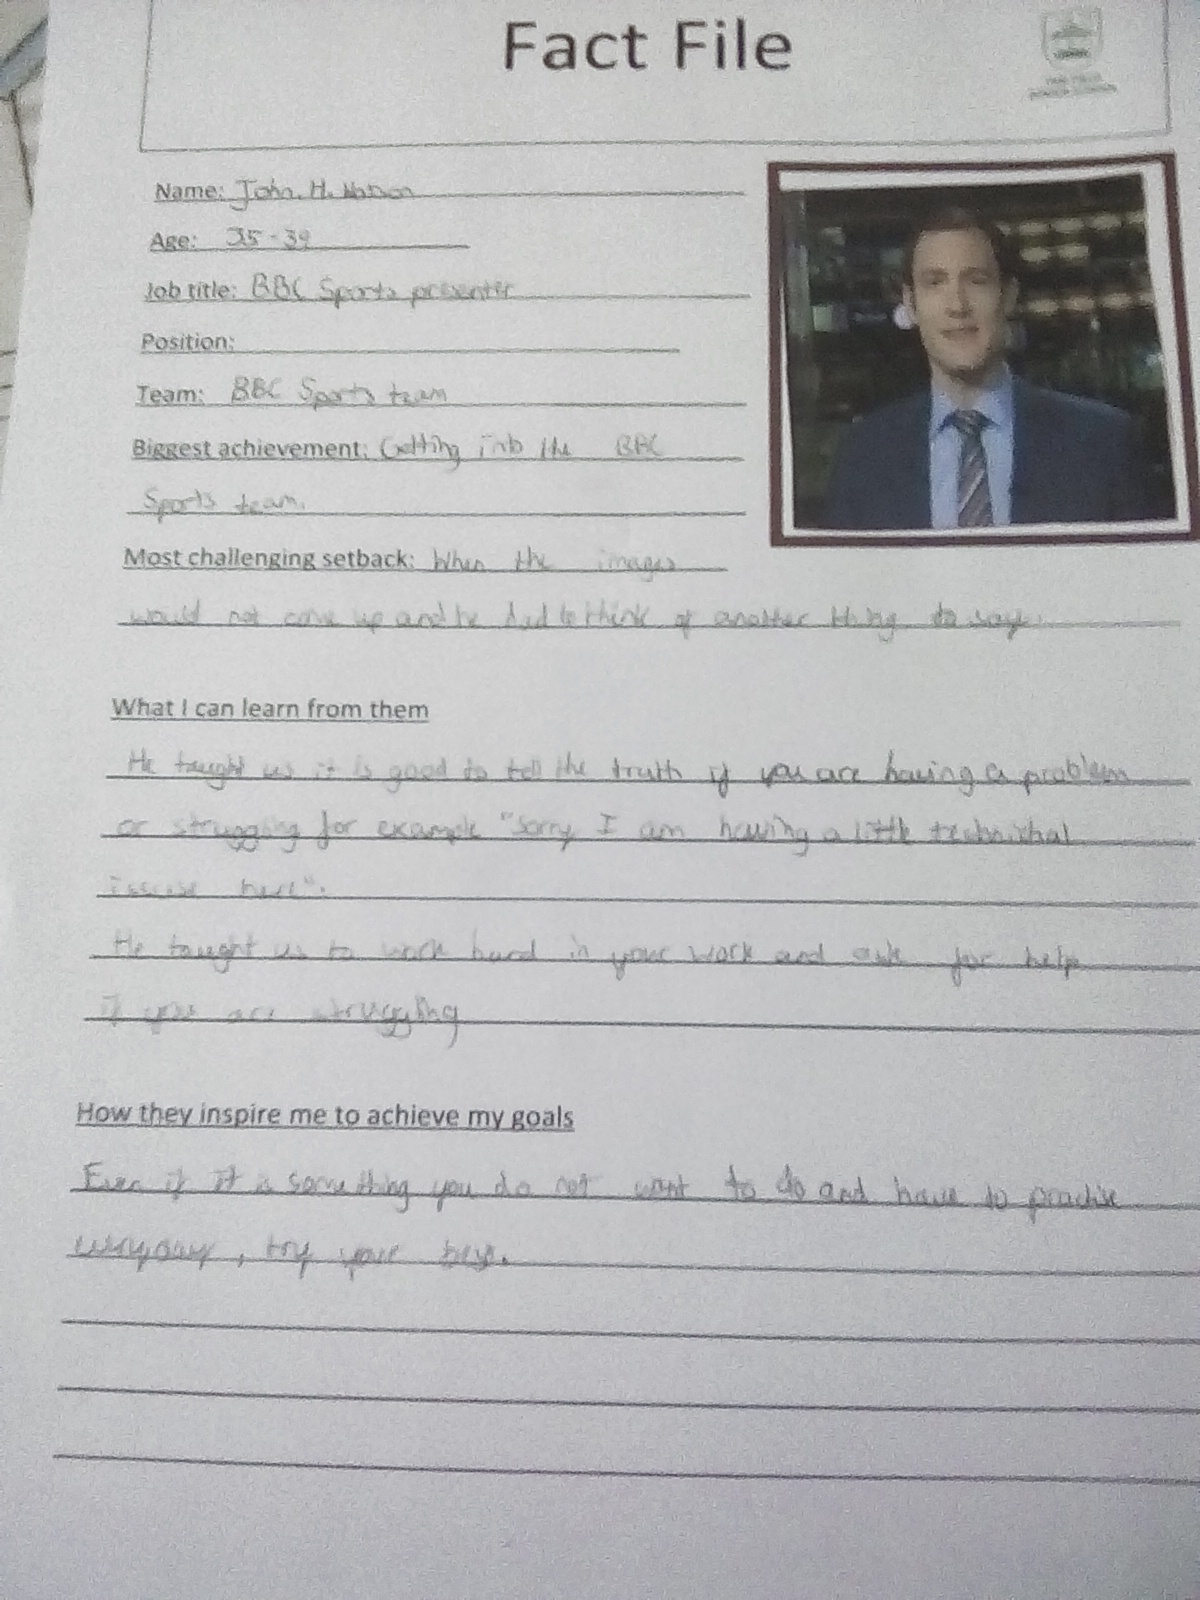 Fact File
Name: John. H. Watson
Age: 35-39
Job title: BBC Sports presenter
Position:
Team: BBC Sports team
Biggest achievement: Getting into the BBC
Sports team.
Most challenging setback: When the images
would not come up and he had to think of another thing to say.
What I can learn from them
He taught us it is good to tell the truth if you are having a problem
or struggling for example "Sorry I am having a little technichal
here".
He taught us to work hard in your work and ask for help
if you are struggling
How they inspire me to achieve my goals
Even if it is something you do not want to do and have to practise
everyday, try your best.